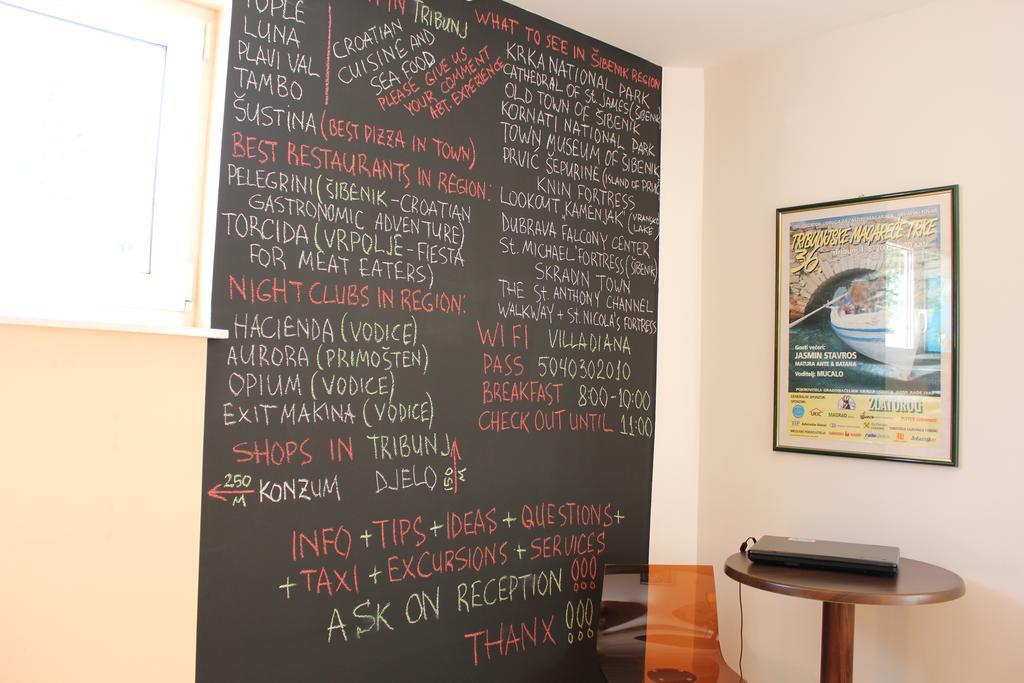 TOPLE
LUNA
PLAVI VAL
TAMBO
ŠUSTINA (BEST PIZZA IN TOWN)
IN TRIBUNJ
CROATIAN
CUISINE AND
SEA FOOD
PLEASE GIVE US
YOUR COMMENT
ABT. EXPERIENCE
BEST RESTAURANTS IN REGION:
PELEGRINI (ŠIBENIK-CROATIAN
GASTRONOMIC ADVENTURE)
TORCIDA (VRPOLJE-FIESTA
FOR MEAT EATERS)
NIGHT CLUBS IN REGION:
HACIENDA (VODICE)
AURORA (PRIMOŠTEN)
OPIUM (VODICE)
EXIT MAKINA (VODICE)
SHOPS IN TRIBUNJ
250 M KONZUM DJELO 150 M
WHAT TO SEE IN ŠIBENIK REGION
KRKA NATIONAL PARK
CATHEDRAL OF St. JAMES (ŠIBENIK
OLD TOWN OF ŠIBENIK
KORNATI NATIONAL PARK
TOWN MUSEUM OF ŠIBENIK
PRVIĆ ŠEPURINE (ISLAND OF PRVIĆ
KNIN FORTRESS
LOOKOUT "KAMENJAK" (VRANSKO
LAKE)
DUBRAVA FALCONY CENTER
St. MICHAEL FORTRESS (ŠIBENIK
SKRADIN TOWN
THE St. ANTHONY CHANNEL
WALKWAY + St. NICOLA'S FORTRESS
WIFI VILLADIANA
PASS 5040302010
BREAKFAST 8:00-10:00
CHECK OUT UNTIL 11:00
INFO + TIPS + IDEAS + QUESTIONS +
+ TAXI + EXCURSIONS + SERVICES
ASK ON RECEPTION !!!
THANX !!!
TRIBUNJSKE MAGAREĆE TRKE
36.
Gosti večeri:
JASMIN STAVROS
MATURA ANTE & BATANA
Voditelj: MUCALO
GENERALNI SPONZOR:
SPONZORI:
ZLATOROG
UKIC
MAGRAD